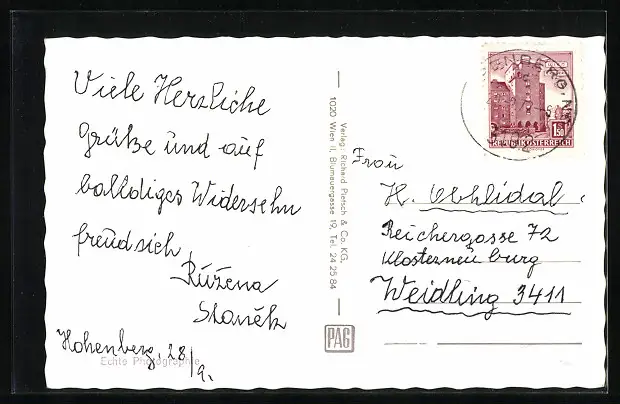 Viele Herzliche
Grüße und auf
balldiges Widersehn
freud sich
Růžena
Staněk
Hohenberg, 28/9.
Echte Photographie
Verlag: Richard Pietsch & Co. KG,
1020 Wien II, Blumauergasse 19, Tel. 24 25 84
PAG
1.50
REPUBLIK ÖSTERREICH
Frau
H. Ovhlidal
Reichergasse 72
Klosterneuburg
Weidling 3411